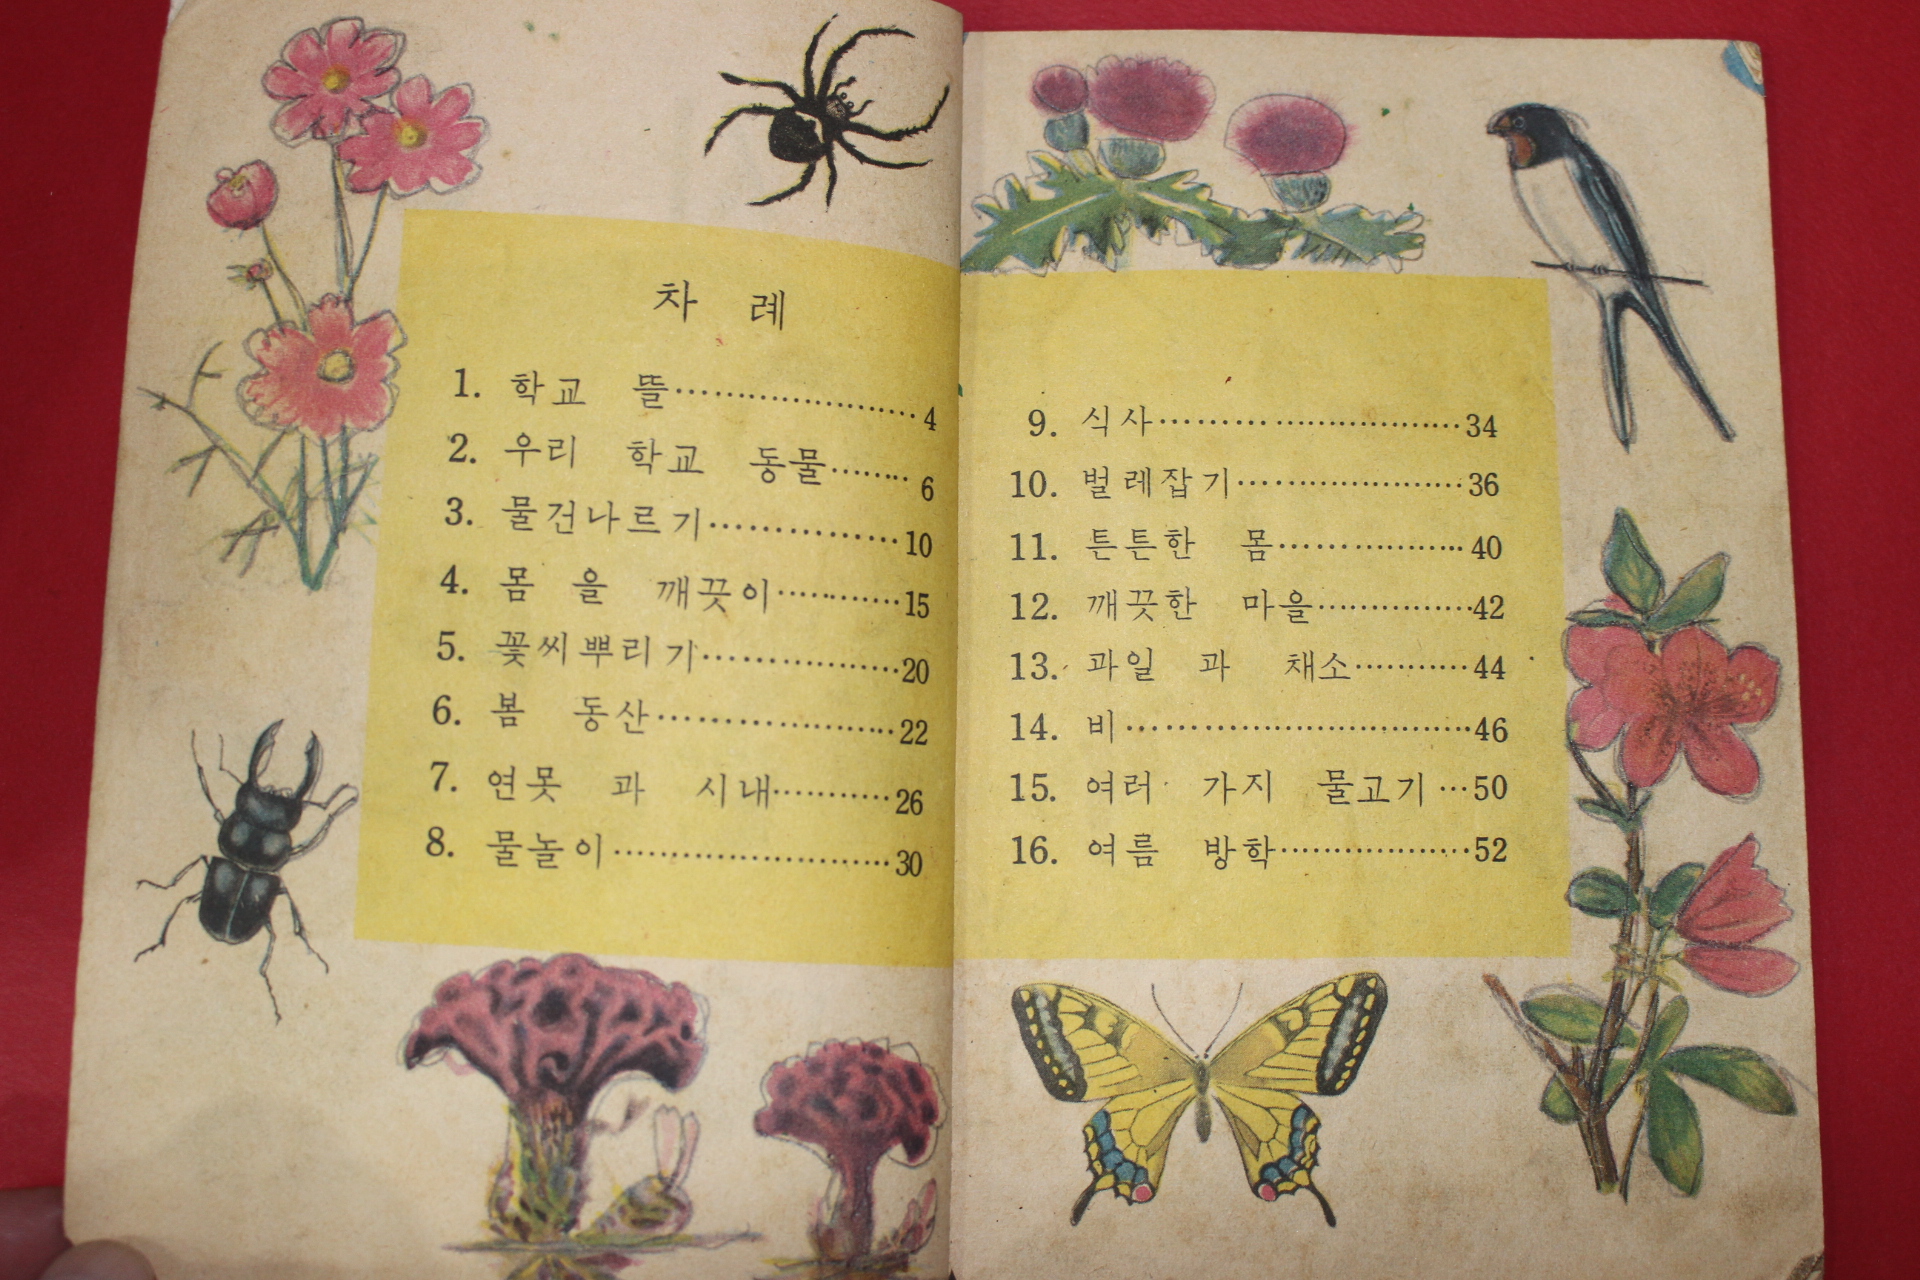 차 례
1. 학교 뜰……………………4
2. 우리 학교 동물………6
3. 물건나르기………………10
4. 몸 을 깨끗이…………15
5. 꽃씨뿌리기………………20
6. 봄 동산……………………22
7. 연못 과 시내…………26
8. 물놀이………………………30
9. 식사…………………………34
10. 벌레잡기…………………36
11. 튼튼한 몸………………40
12. 깨끗한 마을……………42
13. 과일 과 채소…………44
14. 비……………………………46
15. 여러 가지 물고기…50
16. 여름 방학………………52